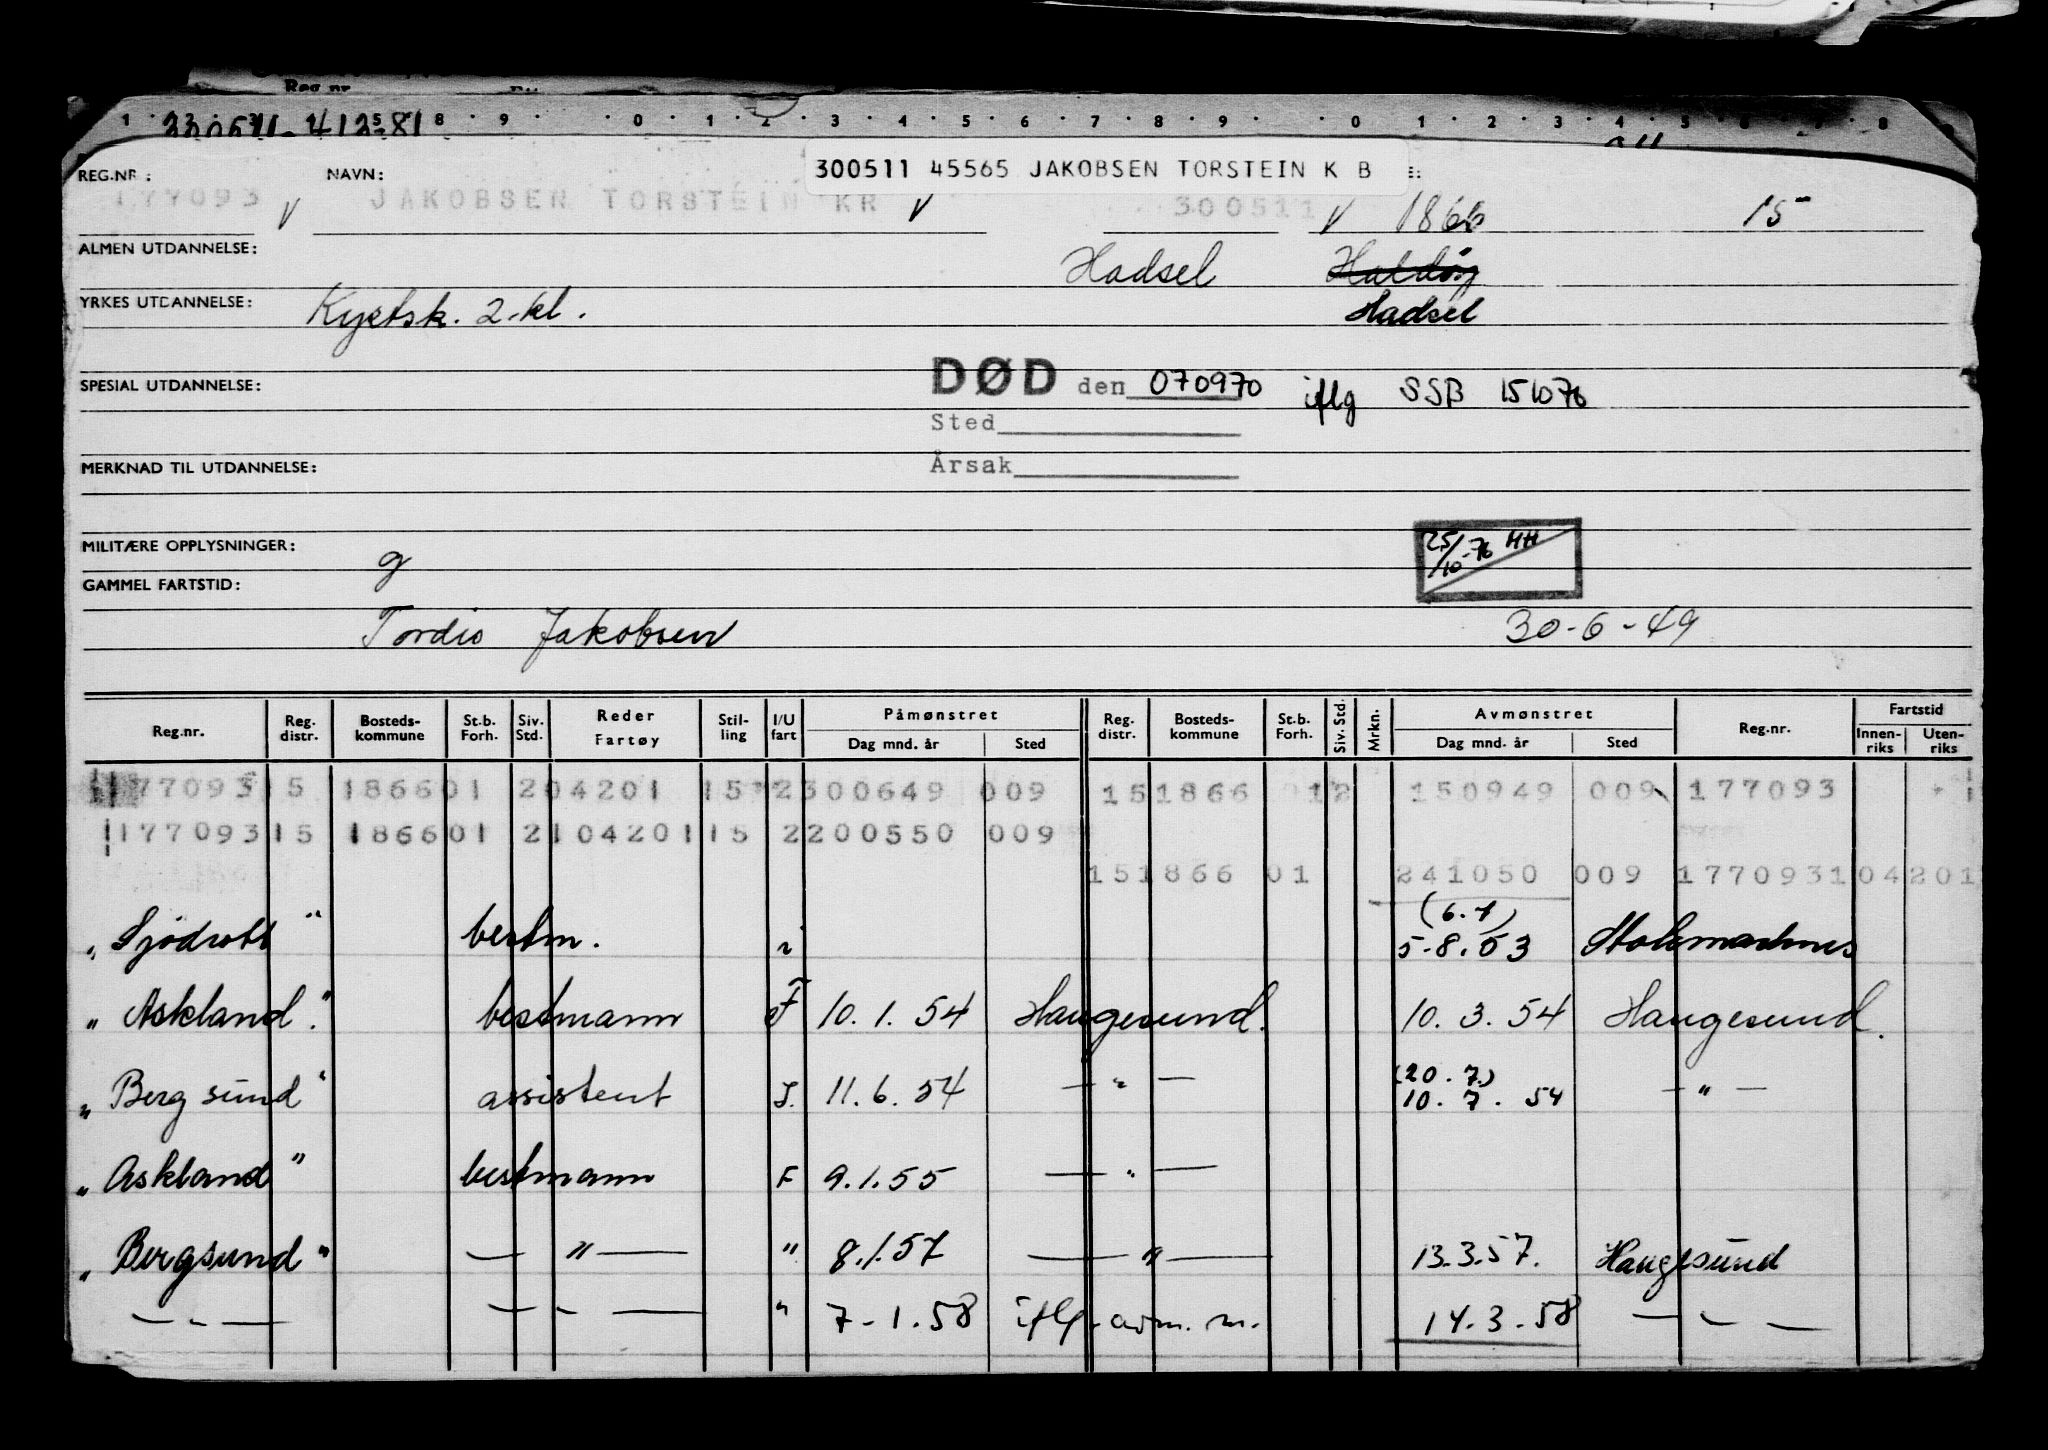 Reg.nr
1 8 9 0 1 2 3 4 5 6 7 8 9 0 1 2 3 4 5 6 7 8
300511 45565 JAKOBSEN TORSTEIN K B
REG.NR: NAVN:
177093 V JAKOBSEN TORSTEIN KR V 300511 V 1866 15
ALMEN UTDANNELSE: Hadsel
YRKES UTDANNELSE: Kystsk. 2.kl. Hadsel
SPESIAL UTDANNELSE: DØD den 070970 iflg SSB 151076
Sted
MERKNAD TIL UTDANNELSE: Årsak
MILITÆRE OPPLYSNINGER: g 25/10-76 HH
GAMMEL FARTSTID:
Tordis Jakobsen 30-6-49
Reg.nr. Reg. distr. Bosteds-kommune St.b. Forh. Siv. Std. Reder Fartøy Stil-ling I/U fart Påmønstret Dag mnd. år Sted Reg. distr. Bosteds-kommune St.b. Forh. Siv. Std. Mrkn. Avmønstret Dag mnd. år Sted Reg.nr. Fartstid Innen-riks Uten-riks
177093 15 1866 01 2 04201 15 2 300649 009 15 1866 12 150949 009 177093
177093 15 1866 01 2 104201 15 2 200550 009
15 1866 01 241050 009 177093 104201
(6.7)
"Sjödrott" bestm. i 5-8.53
"Askland". bestmann F 10.1.54 Haugesund. 10.3.54 Haugesund.
(20.7.)
"Bergsund" assistent S. 11.6.54 — " — 10.7.54 — " —
"Askland" bestmann F 9.1.55 — " —
"Bergsund" — " — " 8.1.57 — " — 13.3.57. Haugesund
— " — — " — " 7-1.58 iflg. avm. m. 14.3.58 — " —